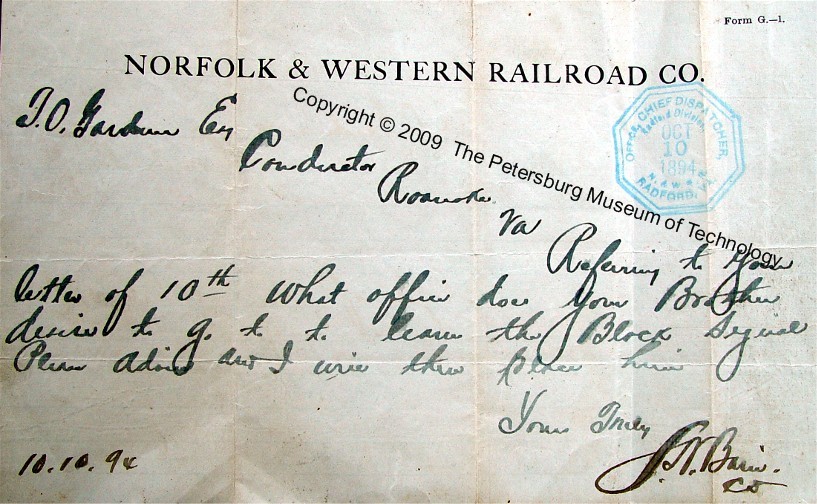 Form G.—1.
NORFOLK & WESTERN RAILROAD CO.
T.O. Gardner Esq
Conductor
Roanoke
Va
Copyright © 2009 The Petersburg Museum of Technology
OFFICE CHIEF DISPATCHER,
Radford Division,
OCT
10
1894
N. & W.
RADFORD, VA.
Referring to your
letter of 10th What office does your Brother
desire to go to to learn the Block Signal
Please advise and I will then place him
Yours Truly
10.10.94
CD